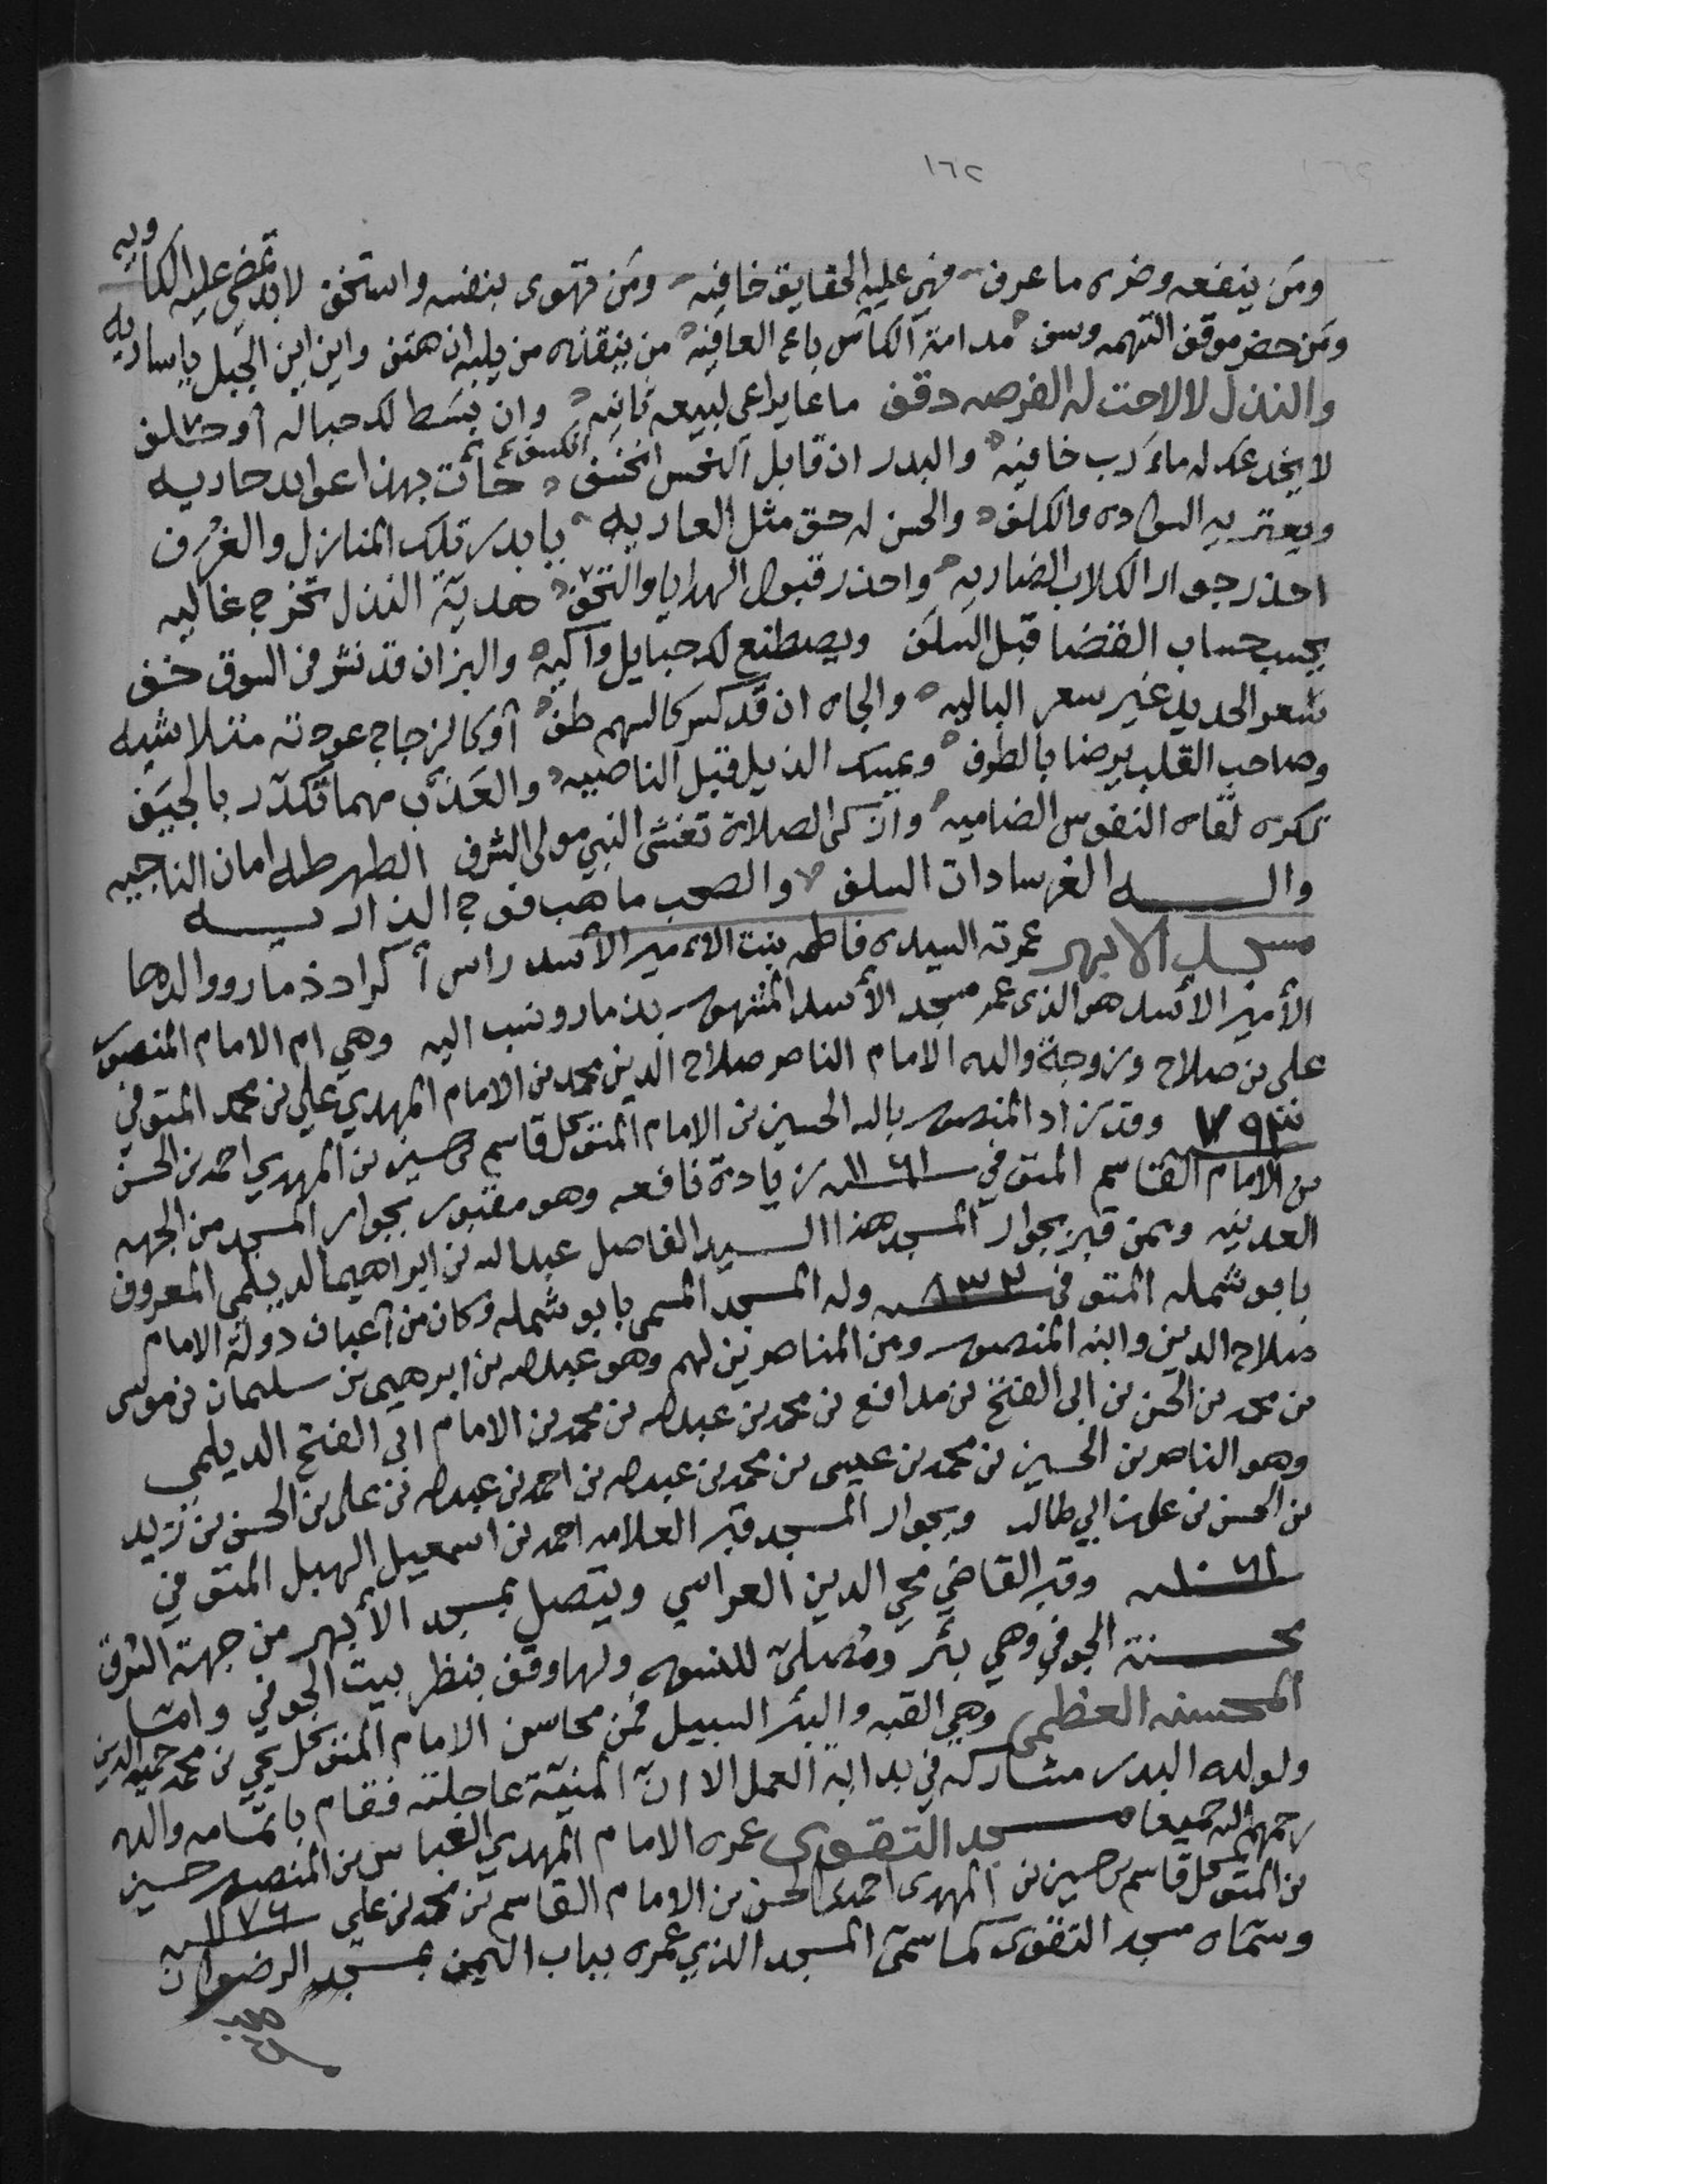 ١٦٢
ومن ينفعه وضره ما عرف فهي عليه الحقايق خافيه ومن تهوى بنفسه واستخف لا بد تمضي عليه الكاويه
ومن حضر موقف التهمه وسف مدامة الكاس باع العافيه من ينقذه من يليه ان هتف واين اين الجبل يا ساريه
والنذل لا لاحت له الفرصه دقف ما عاد يراعي لبيعه ثانيه وان بسط لك حباله أو حلف
لا يخدعك له ماء رب خافيه والبدر ان قابل النحس انخسف حاث بهذا عوايد جاريه
ويعتريه السواده والكلف والحسن له حق مثل العاريه يا بدر تلك المنازل والغرف
احذر جوار الكلاب الضاريه واحذر قبول الهدايا والتحف هدية النذل تخرج غاليه
يحسب حساب القضا قبل السلف ويصطنع لك حبايل واكيه والبز ان قد نشر في السوق خف
سعر الجديد غير سعر الباليه والجاه ان قد كسر كالسهم طف أو كالزجاج عودته متلاشيه
وصاحب القلب يرضا بالطرف ويمسك الذيل قبل الناصيه والعذب مهما تكدر بالجيف
تكره لقاه النفوس الضاميه وازكى الصلاة تغشى النبي مولى الشرف الطهر طه امان الناجيه
واله الغر سادات السلف والصحب ما هب في الذاريه
مسجد الابهر عمرته السيده فاطمه بنت الامير الأسد راس أكراد ذمار ووالدها
الأمير الأسد هو الذى عمر مسجد الأسد المشهور بذمار ونسب اليه وهي ام الامام المنصور
على بن صلاح وزوجة والده الامام الناصر صلاح الدين محمد بن الامام المهدي علي بن محمد المتوفي
سنة ٧٩٣ وقد زاد المنصور بالله الحسين بن الامام المتوكل قاسم بن حسين بن المهدي احمد بن الحسن
بن الامام القاسم المتوفي سنة ١١٦١ زيادة نافعه وهو مقبور بجوار المسجد من الجهه
العدنيه وممن قبر بجوار المسجد هذا السيد الفاضل عبدالله بن ابراهيم الديلمي المعروف
بابو شمله المتوفي سنة ٨٣٣ وله المسجد المسمى بابو شمله وكان من أعيان دولة الامام
صلاح الدين وابنه المنصور ومن المناصرين لهم وهو عبدالله بن ابرهيم بن سليمان بن موسى
بن محمد بن الحسن بن ابى الفتح بن مدافع بن محمد بن عبدالله بن محمد بن الامام ابي الفتح الديلمي
وهو الناصر بن الحسين بن محمد بن عيسى بن محمد بن عبدالله بن احمد بن عبدالله بن على بن الحسن بن زيد
بن الحسن بن على بن ابي طالب وبجوار المسجد قبر العلامه احمد بن اسمعيل الهبل المتوفي
سنة ١٠٦١ وقبر القاضي محي الدين العراسي ويتصل بمسجد الأبهر من جهة الشرق
محسنة الجوفي وهي بئر ومصلى للنسوه ولها وقف بنظر بيت الجوفي وامّا
المحسنه العظمى وهي القبه والبئر السبيل فمن محاسن الامام المتوكل يحيى بن محمد حميد الدين
ولولده البدر مشاركه في بداية العمل الا انّ المنيّة عاجلته فقام باتمامه والده
رحمهم الله جميعا مسجد التقوى عمره الامام المهدي العباس بن المنصور حسين
بن المتوكل قاسم بن حسين بن المهدى احمد بن الحسن بن الامام القاسم بن محمد بن علي سنة ١١٧٦
وسمّاه مسجد التقوى كما سمّى المسجد الذي عمره بباب اليمن بمسجد الرضوان